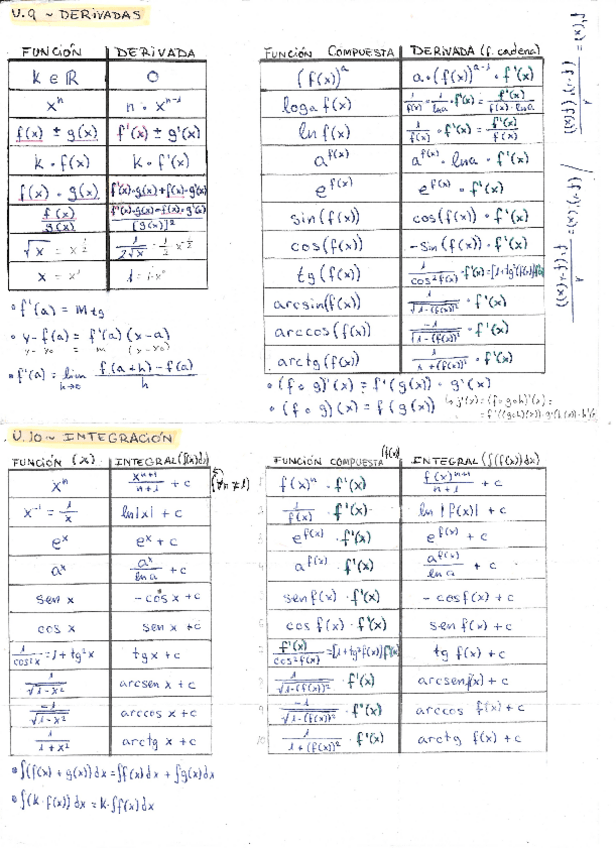 U.9 ~ DERIVADAS
FUNCIÓN | DERIVADA
K ∈ ℝ | 0
xⁿ | n · xⁿ⁻¹
f(x) ± g(x) | f'(x) ± g'(x)
K · f(x) | K · f'(x)
f(x) · g(x) | f'(x)·g(x)+f(x)·g'(x)
f(x)/g(x) | f'(x)·g(x)-f(x)·g'(x)/[g(x)]²
√x = x^½ | 1/2√x
x = x¹
• f'(a) = m tg
• y-f(a) = f'(a) (x-a)
y- y₀ = m (x-x₀)
• f'(a) = lim h→0 f(a+h)-f(a)/h
FUNCIÓN COMPUESTA | DERIVADA (f. cadena)
(f(x))^a | a·(f(x))^a-1 · f'(x)
loga f(x) | 1/f(x) · 1/lna · f'(x) = f'(x)/f(x)·lna
ln f(x) | 1/f(x) · f'(x) = f'(x)/f(x)
a^f(x) | a^f(x) · lna · f'(x)
e^f(x) | e^f(x) · f'(x)
sin(f(x)) | cos(f(x)) · f'(x)
cos(f(x)) | -sin(f(x)) · f'(x)
tg(f(x)) | 1/cos²f(x) · f'(x)=[1+tg²(f(x))]f'(x)
arcsin(f(x)) | 1/√1-(f(x))² · f'(x)
arccos(f(x)) | -1/√1-(f(x))² · f'(x)
arctg(f(x)) | 1/1+(f(x))² · f'(x)
• (f∘g)'(x) = f'(g(x)) · g'(x)
• (f∘g)(x) = f(g(x))
U.10 ~ INTEGRACIÓN
FUNCIÓN (x) | INTEGRAL (∫(x)dx)
xⁿ | xⁿ⁺¹/n+1 + c
x⁻¹ = 1/x | ln|x| + c
eˣ | eˣ + c
aˣ | aˣ/ln a + c
sen x | - cos x + c
cos x | sen x + c
1/cos²x = 1+tg²x | tg x + c
1/√1-x² | arcsen x + c
-1/√1-x² | arccos x + c
1/1+x² | arctg x + c
• ∫(f(x) + g(x))dx = ∫f(x)dx + ∫g(x)dx
• ∫(K·f(x))dx = K·∫f(x)dx
FUNCIÓN COMPUESTA (f(x)) | INTEGRAL (∫(f(x))dx)
f(x)ⁿ · f'(x) | f(x)ⁿ⁺¹/n+1 + c
1/f(x) · f'(x) | ln |f(x)| + c
e^f(x) · f'(x) | e^f(x) + c
a^f(x) · f'(x) | a^f(x)/ln a + c
sen f(x) · f'(x) | - cos f(x) + c
cos f(x) · f'(x) | sen f(x) + c
f'(x)/cos²f(x) = [1+tg²f(x)]f'(x) | tg f(x) + c
1/√1-(f(x))² · f'(x) | arcsen f(x) + c
-1/√1-(f(x))² · f'(x) | arccos f(x) + c
1/1+(f(x))² · f'(x) | arctg f(x) + c